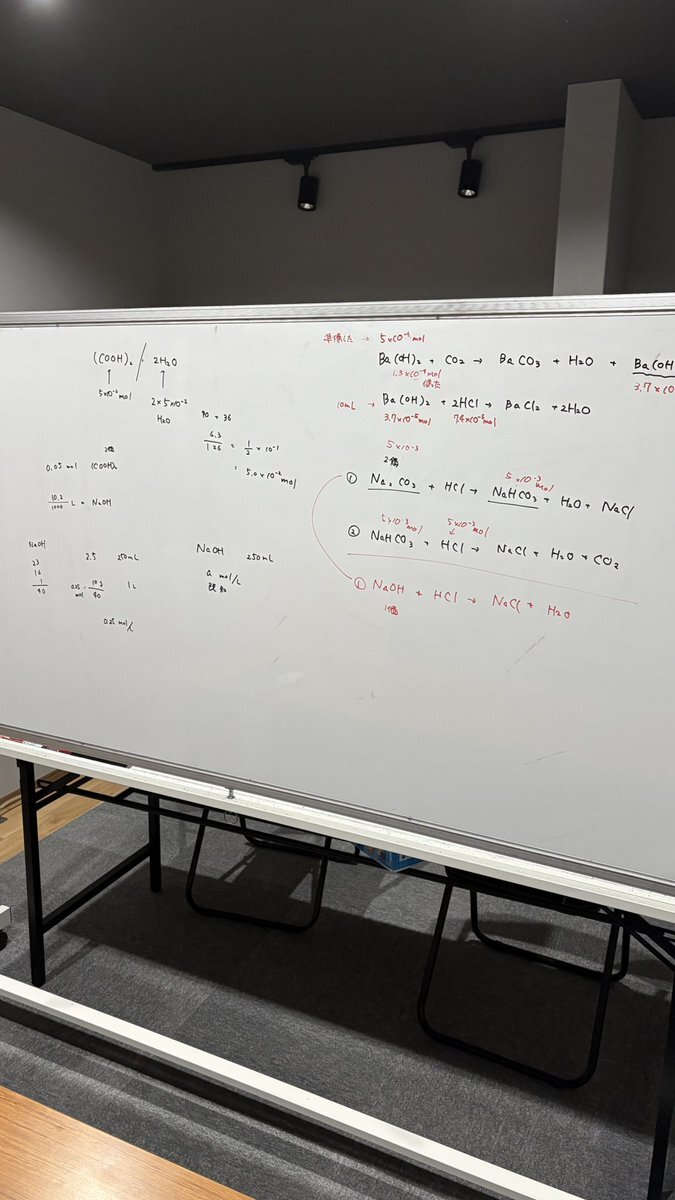 (COOH)₂ / · 2H₂O
5×10⁻² mol
2 × 5×10⁻²
H₂O
90 + 36
6.3/126 = 1/2 × 10⁻¹
= 5.0×10⁻² mol
2価
0.05 mol (COOH)₂
10.2/1000 L = NaOH
NaOH
23
16
1
40
2.5 250mL
1L
0.25 mol/L
NaOH 250mL
a mol/L
準備した →
Ba(OH)₂ + CO₂ → BaCO₃ + H₂O + Ba(OH
使った
3.7×10
10mL → Ba(OH)₂ + 2HCl → BaCl₂ + 2H₂O
3.7×10⁻⁵mol 7.4×10⁻⁵mol
5×10⁻³
2価
5×10⁻³ mol
① Na₂CO₃ + HCl → NaHCO₃ + H₂O + NaCl
5×10⁻³mol 5×10⁻³mol
② NaHCO₃ + HCl → NaCl + H₂O + CO₂
① NaOH + HCl → NaCl + H₂O
1価